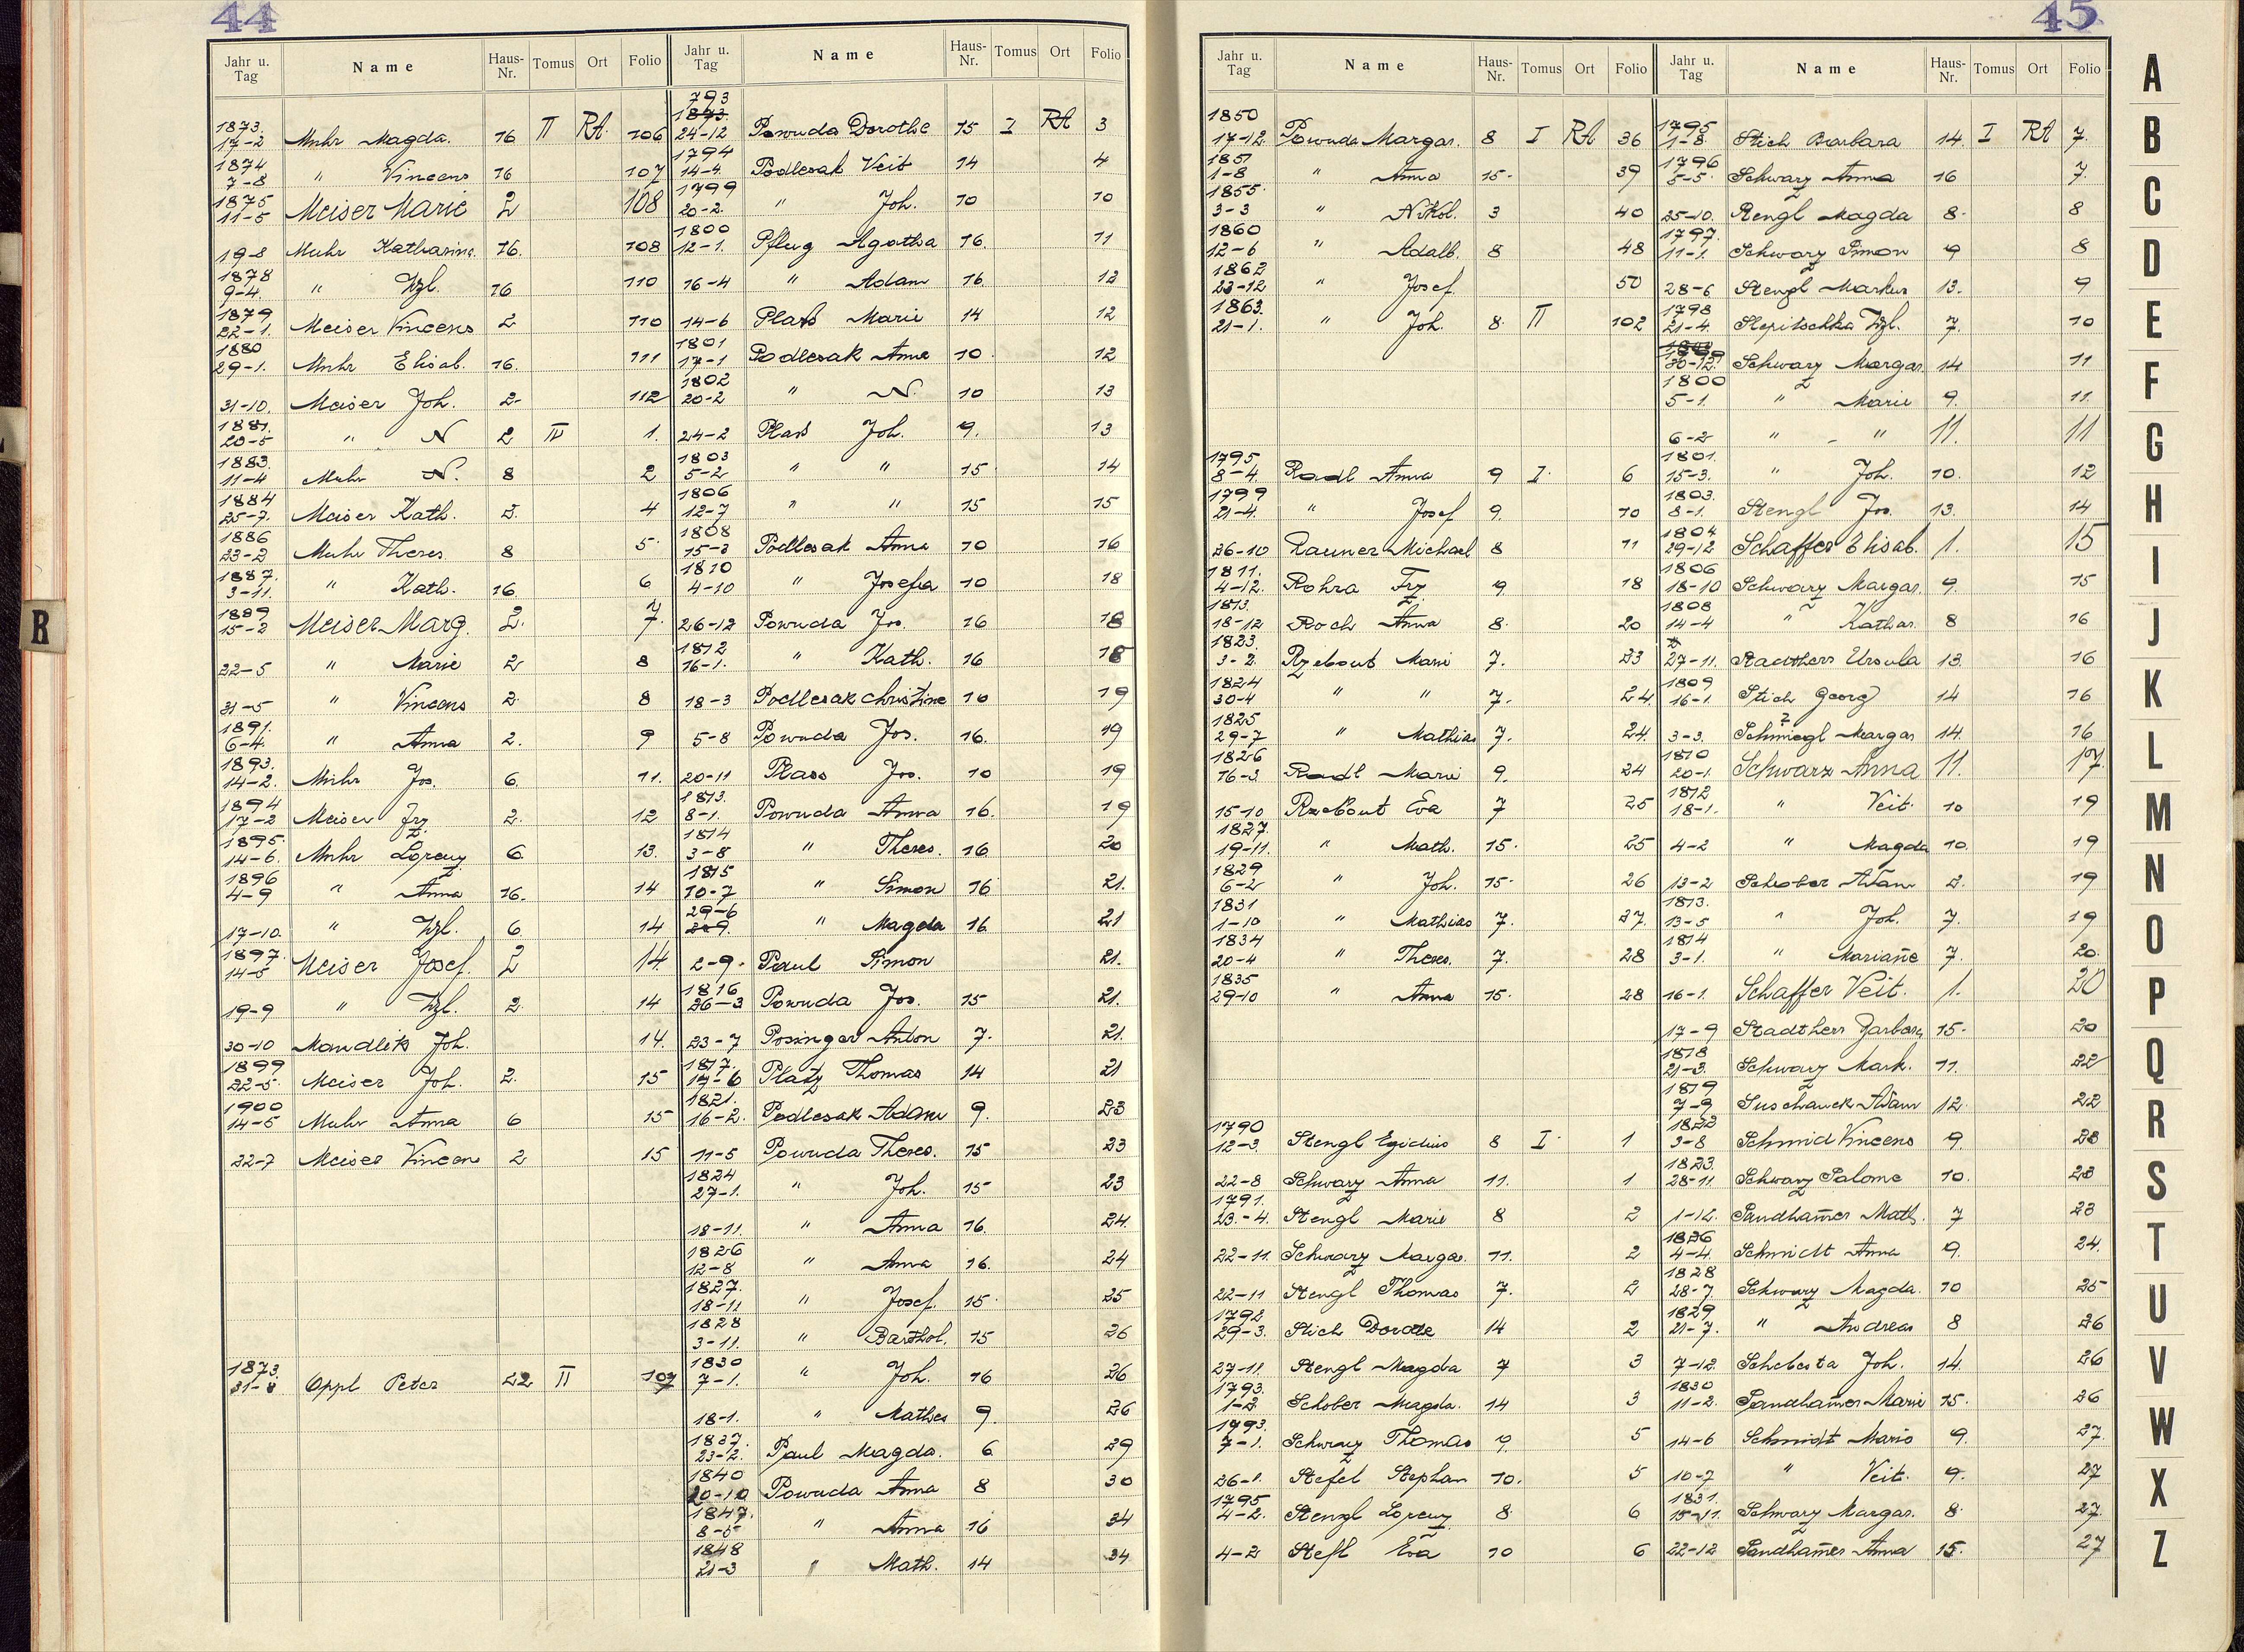 44
Jahr u. Tag Name Haus-Nr. Tomus Ort Folio
1873.
17-2 Muhr Magda. 16 II RA. 106
1874
7-8 " Vincens 16 107
1875
11-5 Meiser Marie 2 108
19-8 Muhr Katharina. 16. 108
1878
9-4. " Wzl. 16 110
1879
22-1. Meiser Vincens 2 110
1880
29-1. Muhr Elisab. 16. 111
31-10. Meiser Joh. 2- 112
1881.
20-5 " N 2 III 1.
1883.
11-4 Muhr N. 8 2
1884
25-7. Meiser Kath. 2. 4
1886
23-2 Muhr Theres. 8 5
1887.
3-11. " Kath. 16 6
1889
15-2 Meiser Marg. 2. 7.
22-5 " Marie 2 8
31-5 " Vincens 2 8
1891.
6-4. " Anna 2. 9
1893.
14-2. Muhr Jos. 6. 11.
1894
17-2 Meiser Frz. 2. 12
1895.
14-6. Muhr Lorenz 6 13.
1896
4-9 " Anna 16. 14
17-10. " Wzl. 6 14
1897.
14-5 Meiser Josef. 2 14.
19-9 " Wzl. 2 14
30-10 Mandlik Joh. 14.
1899
22-5. Meiser Joh. 2. 15
1900
14-5 Muhr Anna 6 15
22-7 Meiser Vincens 2 15
1873.
31-8 Oppl Peter 22 II 107
Jahr u. Tag Name Haus-Nr. Tomus Ort Folio
793
1873.
24-12 Powuda Dorothe 15 I RA 3
1794
14-4. Podlesak Veit 14 4
1799
20-2. " Joh. 10 10
1800
12-1. Pflug Agatha 16. 11
16-4 " Adam 16. 12
14-6 Plass Marie 14 12
1801
17-1 Podlesak Anna 10 12
1802
20-2 " N. 10 13
24-2 Plass Joh. 9. 13
1803
5-2 " " 15 14
1806
12-7 " " 15 15
1808
15-3 Podlesak Anna 10 16
1810
4-10 " Josefa 10 18
26-12 Powuda Jos. 16 18
1812
16-1. " Kath. 16 18
18-3 Podlesak Christine 10 19
5-8 Powuda Jos. 16. 19
20-11 Plass Jos. 10 19
1813.
8-1. Powuda Anna 16. 19
1814
3-8 " Theres. 16 20
1815
10-7 " Simon 16 21.
29-6
" Magda 16. 21
2-9. Paul Simon 21.
1816
26-3 Powuda Jos. 15 21.
23-7 Posinger Anton 7. 21.
1817.
14-6 Platz Thomas 14 21
1821.
16-2. Podlesak Adam 9. 23
11-5 Powuda Theres. 15 23
1824
27-1. " Joh. 15 23
18-11. " Anna 16. 24.
1826
12-8 " Anna 16. 24
1827.
18-11 " Josef. 15. 25
1828
3-11. " Barthol. 15 26
1830
7-1. " Joh. 16 26
18-1. " Mathes 9. 26
1837.
23-12. Paul Magda. 6 29
1840
20-10 Powuda Anna 8 30
1847.
8-5 " Anna 16 34
1848
21-3 " Math. 14 34
45
Jahr u. Tag Name Haus-Nr. Tomus Ort Folio
1850
17-12. Powuda Margar. 8 I RA 36
1851
1-8 " Anna 15. 39
1855.
3-3 " Nikol. 3 40
1860
12-6 " Adalb. 8 48
1862
23-12 " Josef. 50
1863.
21-1. " Joh. 8. II 102
1795
8-4. Radl Anna 9 I. 6
1799
21-4. " Josef 9. 10
26-10 Rauner Michael 8 11
1811.
4-12. Rohra Frz 9 18
1813.
18-12 Roch Anna 8. 20
1823.
3-2. Rzebout Marie 7. 23
1824
30-4 " " 7. 24.
1825
29-7 " Mathias 7. 24.
1826
16-3. Radl Marie 9. 24
15-10 Rzebout Eva 7 25
1827.
19-11. " Math. 15. 25
1829
6-2 " Joh. 15. 26
1831
1-10 " Mathias 7. 27.
1834
20-4 " Theres. 7. 28
1835
29-10 " Anna 15. 28
1790
12-3. Stengl Egidius 8 I. 1
22-8 Schwarz Anna 11. 1
1791.
23.-4. Stengl Marie 8 2
22-11. Schwarz Margar. 11. 2
22-11 Stengl Thomas 7. 2
1792
29-3. Stich Dorote 14 2
27-11. Stengl Magda 7 3
1793.
1-2. Schober Magda. 14 3
1793.
7-1. Schwarz Thomas 9. 5
26-1. Stefel Stephan 10. 5
1795
4-2. Stengl Lorenz 8. 6
4-2 Stefl Eva 10 6
Jahr u. Tag Name Haus-Nr. Tomus Ort Folio
1795
1-8. Stich Barbara 14. I RA 7.
1796
5-5. Schwarz Anna 16 7.
25-10. Rengl Magda 8. 8
1797.
11-1. Schwarz Simon 9 8
28-6 Stengl Markus 13. 9
1798
21-4 Slepitschka Wzl. 7. 10
30-12. Schwarz Margar. 14. 11
1800
5-1. " Marie 9. 11.
6-2 " - " 11. 11
1801.
15-3. " Joh. 10. 12
1803.
8-1. Stengl Jos. 13. 14
1804
29-12 Schaffer Elisab. 1. 15
1806
18-10 Schwarz Margar. 9. 15
1808
14-4 " Kathar. 8 16
27-11. Stadtherr Ursula 13. 16
1809
16-1. Stich Georg 14 16
?
3-3. Schmiegl Margar 14. 16
1810
20-1. Schwarz Anna 11. 17.
1812
18-1. " Veit. 10 19
4-2 " Magda 10. 19
13-2 Schober Adam 2. 19
1813.
13-5 " Joh. 7. 19
1814
3-1. " Mariane 7. 20.
16-1. Schaffer Veit. 1. 20
17-9 Stadtherr Barbara 15. 20
1818
21-3. Schwarz Mark. 11. 22
1819
7-9 Suschanek Adam 12. 22
1822
3-8 Schmid Vincens 9. 23
1823.
28-11 Schwarz Salome 10. 23
1-12. Sandhamer Math. 7 23
1826
4-4. Schmidt Anna 9. 24.
1828
28-7. Schwarz Magda. 10 25
1829
21-7. " Andreas 8 26
7-12. Schebesta Joh. 14. 26
1830
11-2. Sandhamer Marie 15. 26
14-6 Schmidt Marie 9. 27.
10-7 " Veit. 9. 27
1831.
15-11. Schwarz Margar. 8. 27.
22-12 Sandhamer Anna 15. 27
A
B
C
D
E
F
G
H
I
J
K
L
M
N
O
P
Q
R
S
T
U
V
W
X
Z
R